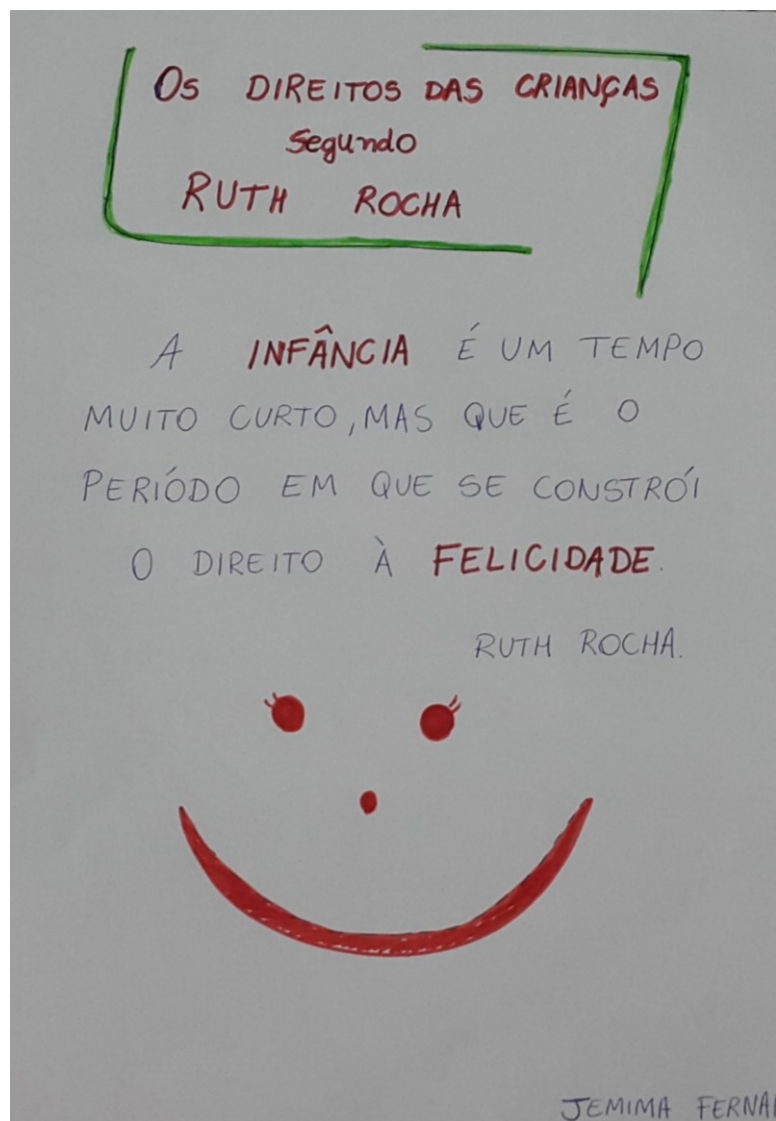 Os DIREITOS DAS CRIANÇAS
Segundo
RUTH ROCHA
A INFÂNCIA É UM TEMPO
MUITO CURTO, MAS QUE É O
PERIÓDO EM QUE SE CONSTRÓI
O DIREITO À FELICIDADE.
RUTH ROCHA.
JEMIMA